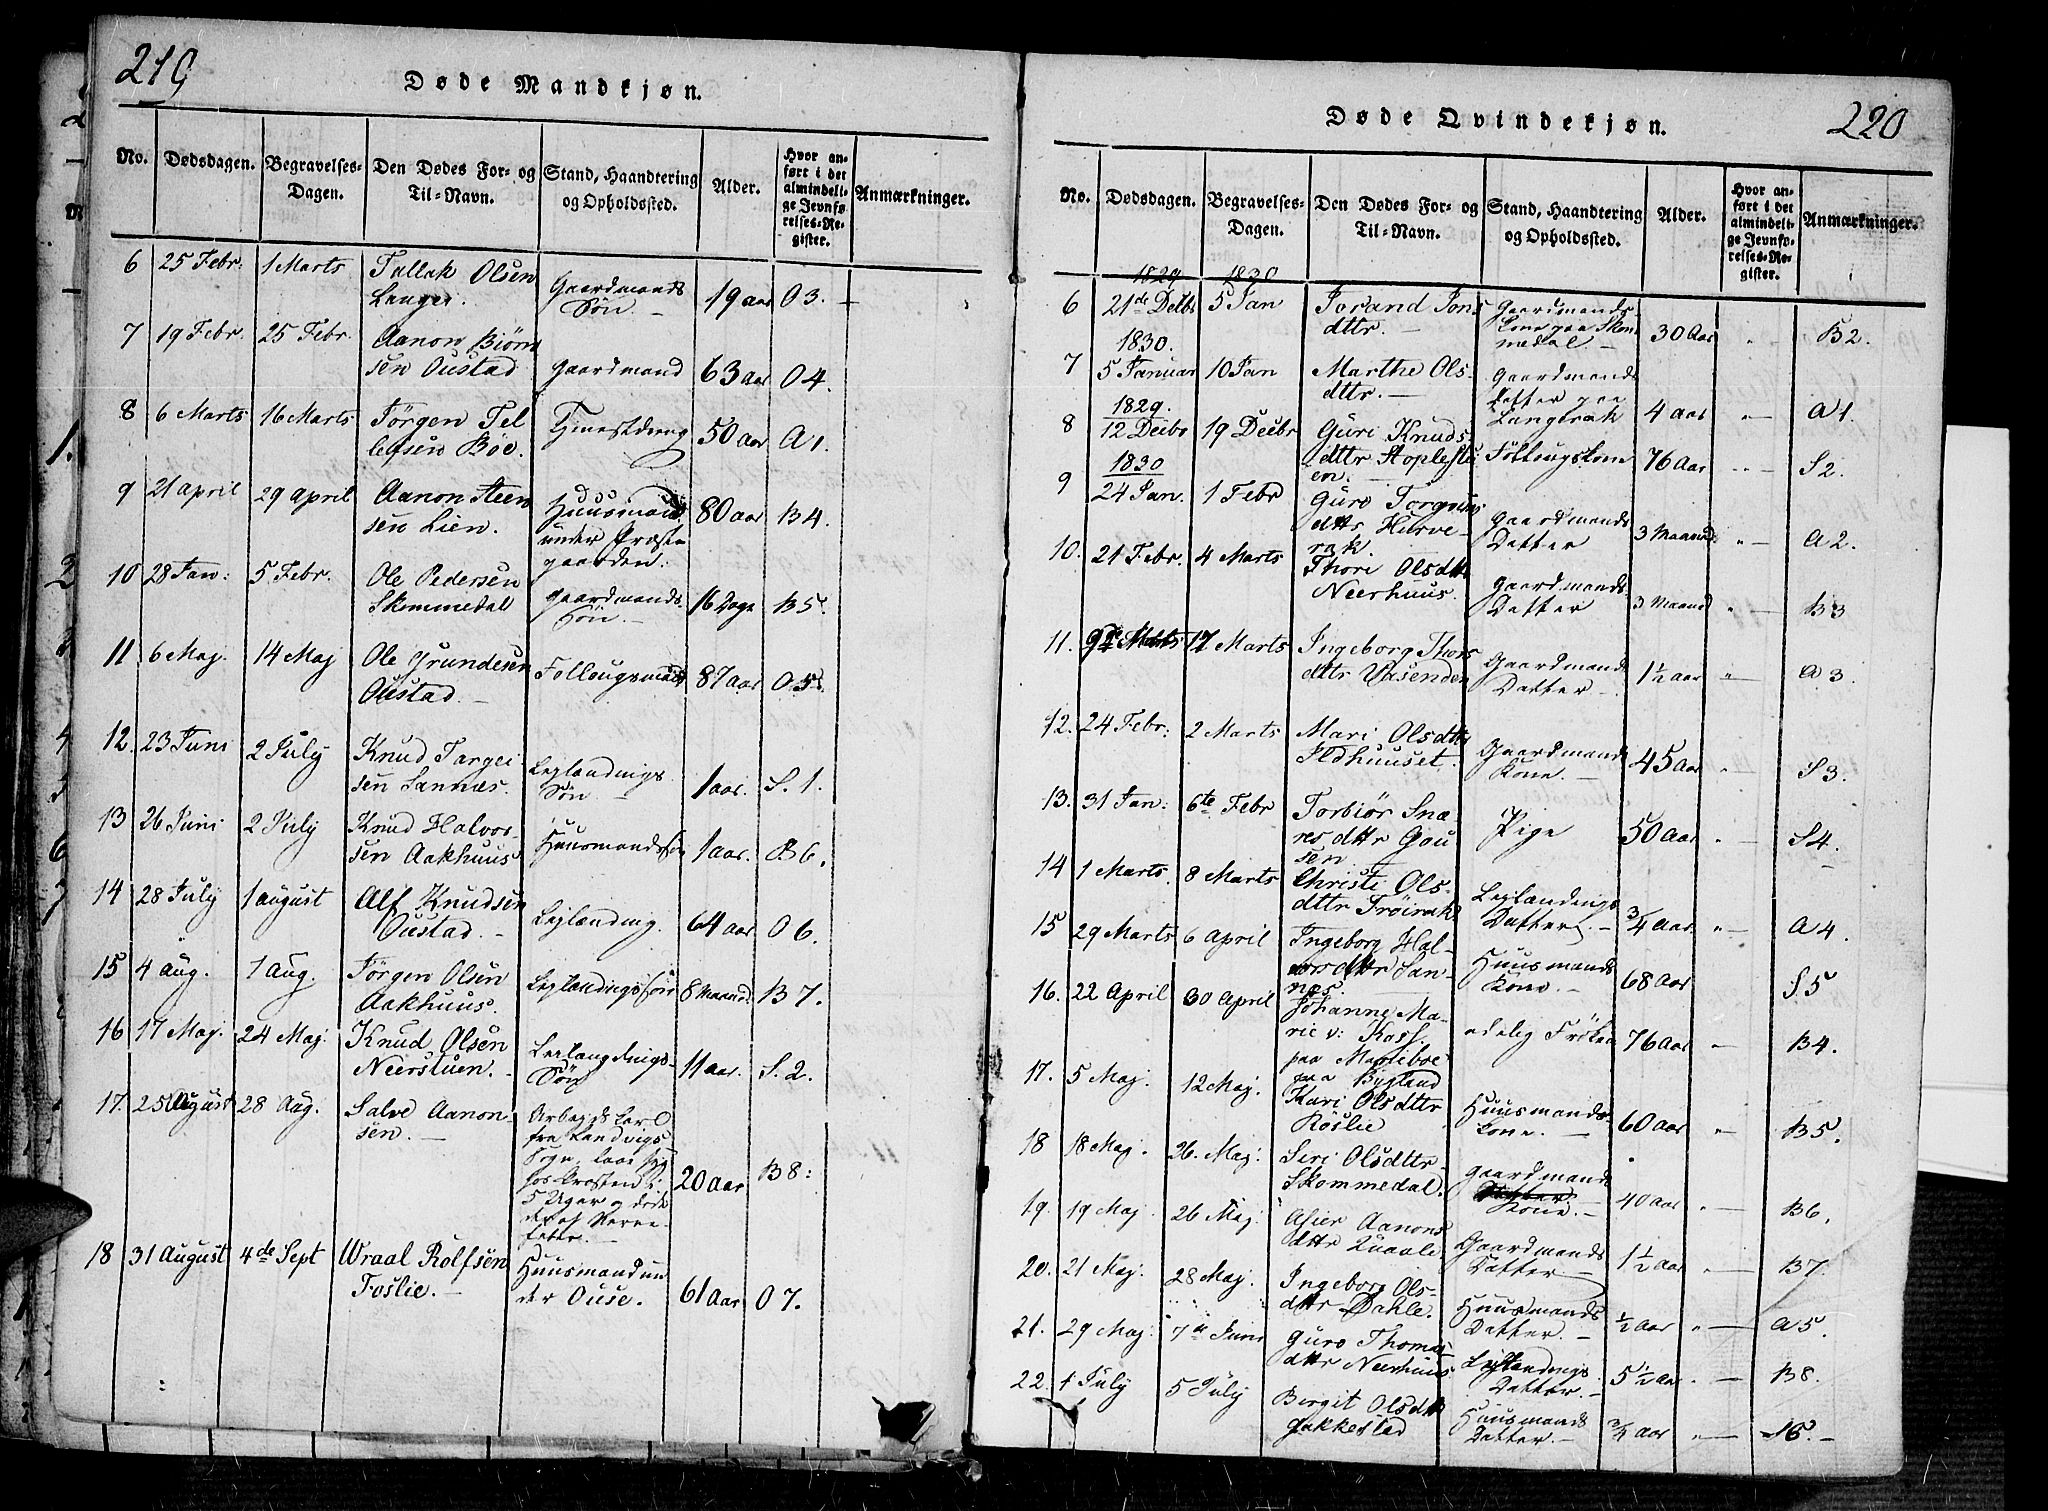 219
Døde Mandkjøn.
No.
Dødsdagen.
Begravelses-
Dagen.
Den Dødes For- og
Til-Navn.
Stand, Haandtering
og Opholdssted.
Alder.
Hvor an-
ført i det
almindeli-
ge Jevnfø-
relses-Re-
gister.
Anmærkninger.
6 25 Febr: 1 Marts Tallak Olsen
Langei. Gaardmands
Søn. 19 aar O 3.
7 19 Febr. 25 Febr. Aanon Biörn
sen Oustad gaardmand 63 aar O 4.
8 6 Marts 16 Marts Törgen Tel
lefsen Böe. Tjenestdreng 50 aar A 1.
9 21 april 29 april Aanon Steen
sen Lien. Huusmand
under Præste
gaarden. 80 aar B 4.
10 28 Jan: 5 Febr. Ole Pedersen
Skommedal gaardmands
Søn. 16 Dage B 5.
11 6 Maj. 14 Maj Ole Grundesen
Oustad. Follougsmand 87 aar O 5.
12 23 Juni 2 July Knud Targei
sen Sannæs. Lejlændings
Søn. 1 aar. S. 1.
13 26 Juni 2 July Knud Halvor-
sen Aakhuus Huusmandssøn 1 aar. B 6.
14 28 July 1 august Alf Knudsen
Oustad. Lejlænding. 64 aar O 6.
15 4 aug. 1 aug. Jörgen Olsen
Aakhuus. Lejlændingssøn 8 Maaned. B 7.
16 17 Maj. 24 Maj. Knud Olsen
Neerstuen. Lejlændings-
Søn 11 aar. S. 2.
17. 25 August 28 Aug. Salve Aanon-
sen. Arbejdskarl
fra Landvigs
Sogn, laae syg
hos Præsten i
5 Uger og døde
der af Nerve
feber. 20 aar B 8:
18 31 August 4de Sept Wraal Rolfsen
Foslie. Huusmand un
der Ouse. 61 aar O 7.
220
Døde Qvindekjøn.
No.
Dødsdagen.
Begravelses-
Dagen.
Den Dødes For- og
Til-Navn.
Stand, Haandtering
og Opholdssted.
Alder.
Hvor an-
ført i det
almindeli-
ge Jevnfø-
relses-Re-
gister.
Anmærkninger.
1829 1830
6 21de Decbr 5 Jan Jorand Jons
dttr. Gaardmands
Kone paa Skom
medal. 30 Aar B 2.
1830.
7 5 Januar 10 Jan Marthe Ols-
dttr. Gaardmands
Datter paa
Langerak 4 aar A 1.
1829.
8 12 Decbr 19 Decbr Guri Knuds
dttr Föllougskone 76 Aar S 2.
1830
9 24 Jan. 1 Febr Guro Torgrims
dttr Hurve-
rak. Gaardmands
Datter 3 Maaned: A 2.
10. 21 Febr. 4 Marts Thori Olsdttr
Neerhuus. Gaardmands
Datter 3 Maaned B 3
11. 17 Marts Ingeborg Thors
dttr Vasenden Gaardmands
Datter 1½ aar A 3.
12. 24 Febr: 2 Marts Mari Olsdttr
Ildhuuset. Gaardmands
Kone. 45 Aar S 3.
13. 31 Jan: 6te Febr Torbiör Snæ-
res dttr Gou
sen. Pige 50 Aar S 4.
14 1 Marts. 8 Marts Christi Ols-
dttr Fröirak Lejlændings
Datter. ¾ aar A 4.
15 29 Marts 6 April Ingeborg Hal-
vorsdttr San-
næs. Huusmands
Kone. 68 aar S. 5
16. 22 April 30 April Johanne Ma-
rie v: Koss.
paa
paa Bygland adelig Fröken 76 Aar B 4.
17. 5 Maj. 12 Maj. Kari Olsdttr
Röslie Huusmands
kone. 60 Aar B 5.
18 18 Maj. 26. Maj. Siri Olsdttr
Skommedal. gaardmands
Kone. 40 Aar B 6.
19. 19 Maj. 26 Maj. Asier Aanons
dttr Quaale. Gaardmands
Datter 1½ Aar B 7.
20. 21 Maj. 28 Maj. Ingeborg Ols-
dttr Dahle. Huusmands
Datter. ½ aar A 5.
21. 29 Maj. 7de Juni Guro Thomas
dttr Neerhuus Lejlændings
Datter. 5½ Aar B 8.
22. 1 July 5 July Birgit Olsdttr
Jakkestad Huusmands
Datter. ¾ aar